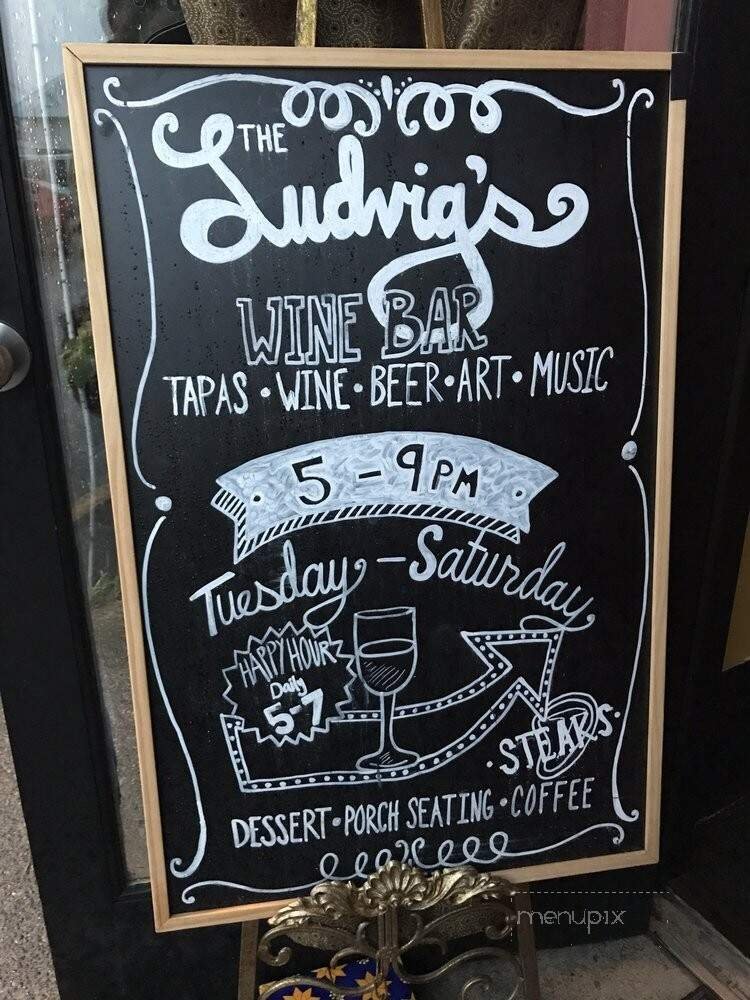 THE
Ludvig's
WINE BAR
TAPAS • WINE • BEER • ART • MUSIC
5 - 9 PM
Tuesday - Saturday
HAPPY HOUR
Daily
5-7
• STEAKS •
DESSERT • PORCH SEATING • COFFEE
menupix